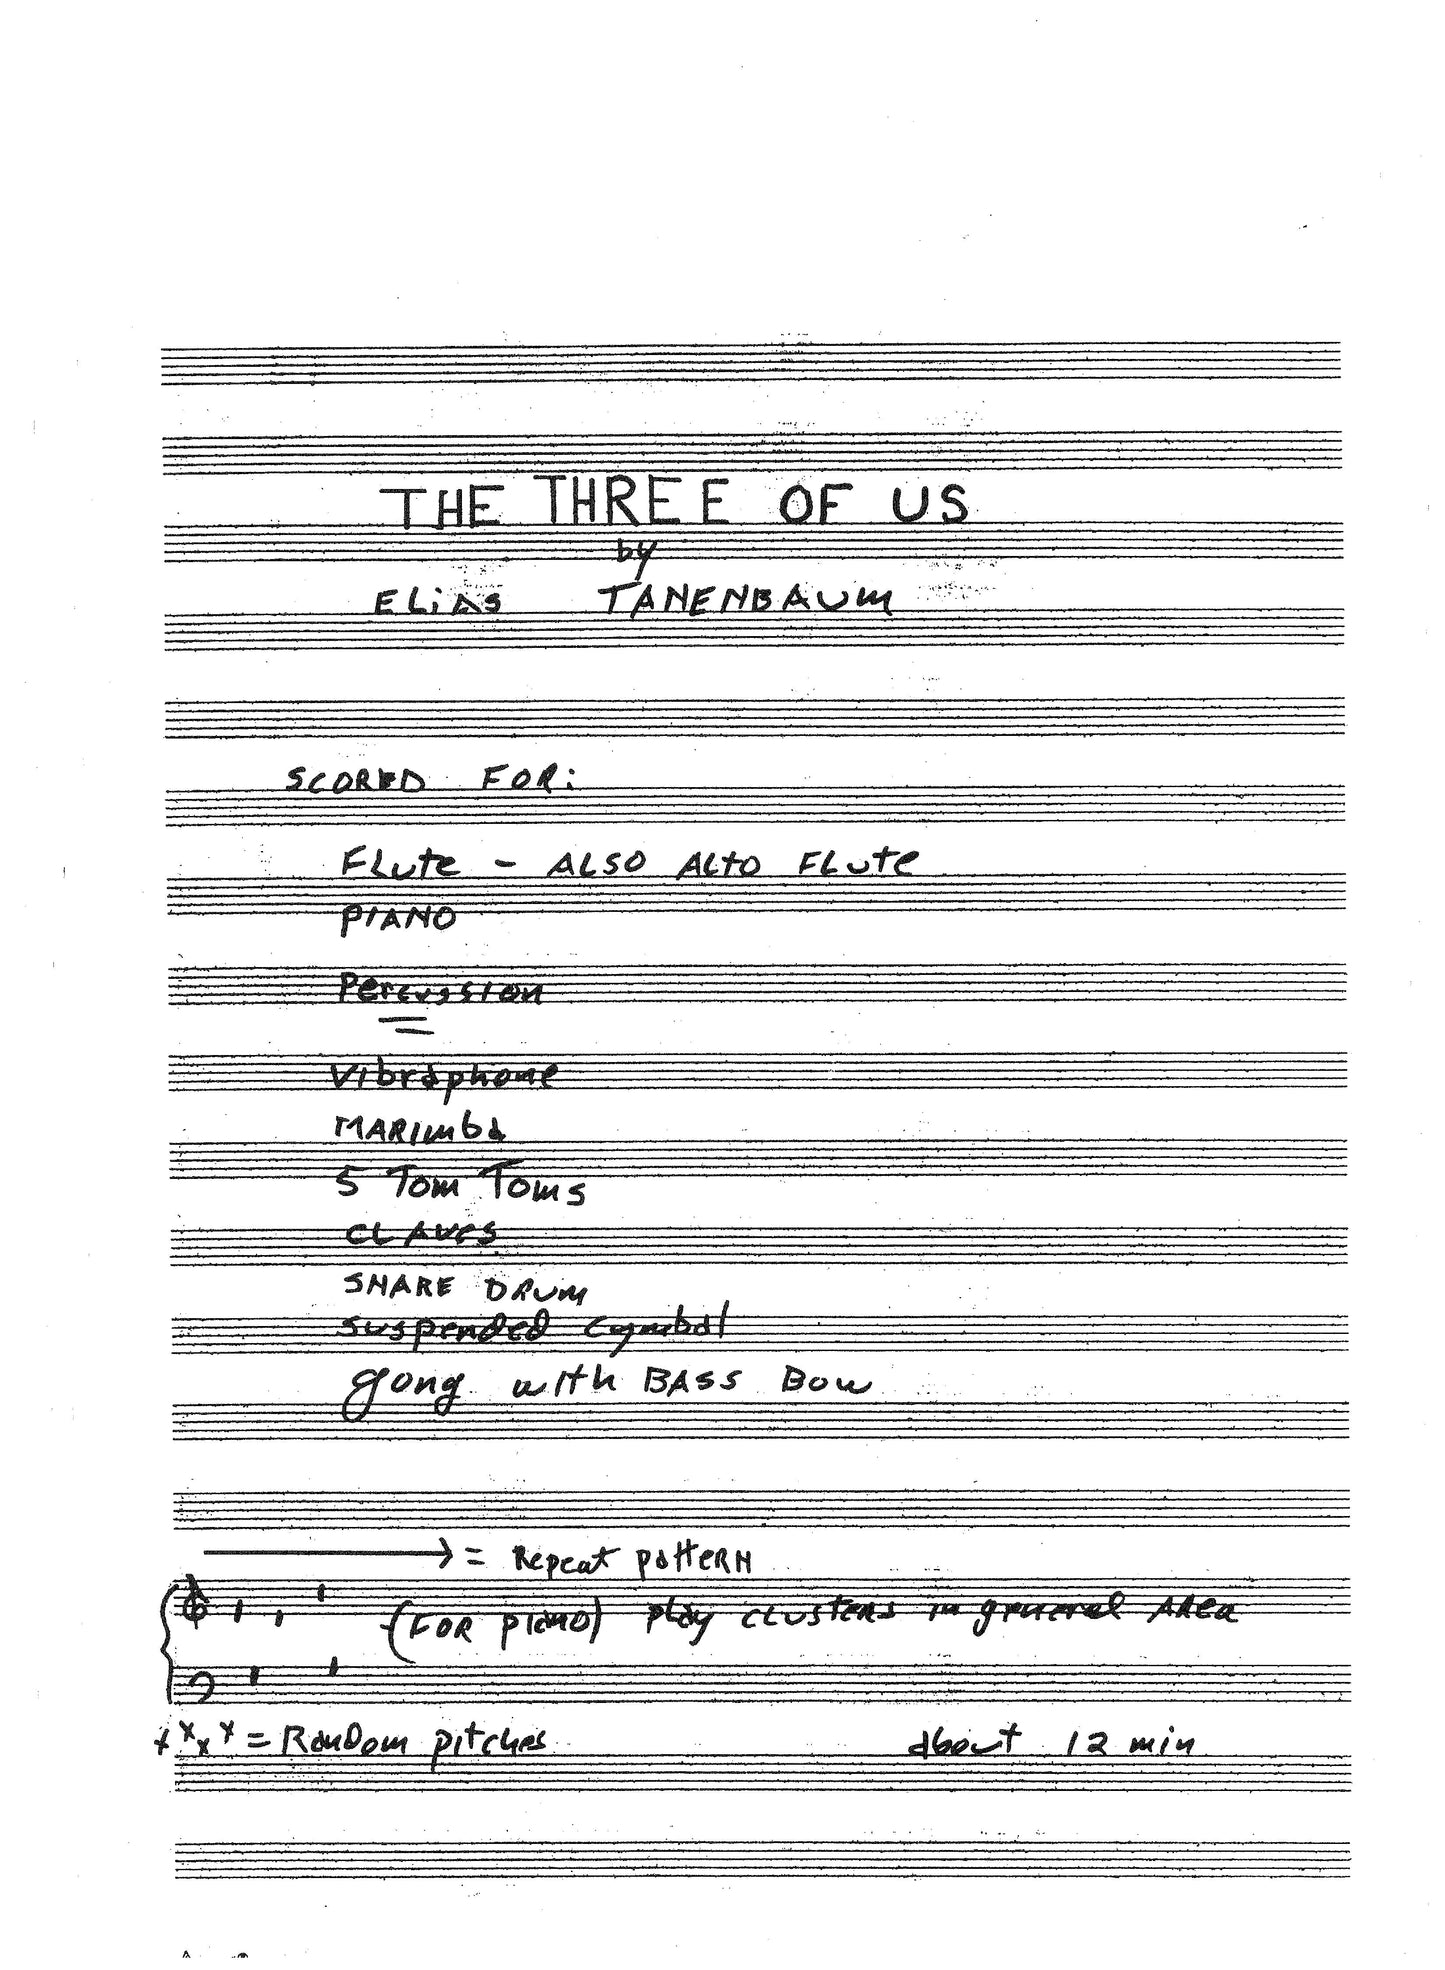 THE THREE OF US
by
ELiAS TANENBAUM
SCORED FOR:
FLute - ALSO ALTO FLute
PIANO
Percussion
Vibraphone
MARImba
5 Tom Toms
CLAVES
SNARE DRUM
suspended cymbal
gong with BASS Bow
= Repeat patteRN
(FOR piano) play CLUSTERS in general AREA
xxxx = Random pitches
about 12 min